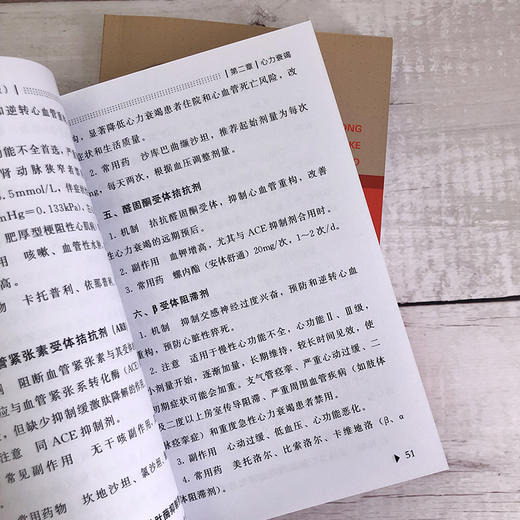 第二章 | 心力衰竭
构，显著降低心力衰竭患者住院和心血管死亡风险，改
症状和生活质量。
2. 常用药 沙库巴曲缬沙坦，推荐起始剂量为每次
mg，每天两次，根据血压调整剂量。
五、醛固酮受体拮抗剂
1. 机制 拮抗醛固酮受体，抑制心血管重构，改善
性心力衰竭的远期预后。
2. 副作用 血钾增高，尤其与 ACE 抑制剂合用时。
3. 常用药 螺内酯（安体舒通）20mg/次，1～2 次/d。
六、β受体阻滞剂
1. 机制 抑制交感神经过度兴奋，预防和逆转心血
重构，预防心脏性猝死。
2. 注意 适用于慢性心功能不全，心功能Ⅱ、Ⅲ级，
小剂量开始，逐渐加量，长期维持，较长时间见效，使
初期症状可能会加重，支气管痉挛、严重心动过缓、二
及二度以上房室传导阻滞、严重周围血管疾病（如肢体
脉痉挛症）和重度急性心力衰竭患者禁用。
3. 副作用 心动过缓、低血压、心功能恶化。
4. 常用药 美托洛尔、比索洛尔、卡维地洛（β、α
体阻滞剂）。
51
和逆转心血管
功能不全首选，严
肾动脉狭窄
5mmol/L，伴症
mHg＝0.133kPa)
肥厚型梗阻性心肌病
用 咳嗽、血管性水
物 卡托普利、依那普
管紧张素受体拮抗剂（ARB
阻断血管紧张素与其受
应与血管紧张系转化酶（ACE
，但缺少抑制缓激肽降解的作用
意 同 ACE 抑制剂。
常见副作用 无干咳副作用
常用药物 坎地沙坦、氯沙坦、
ONG
KE
O